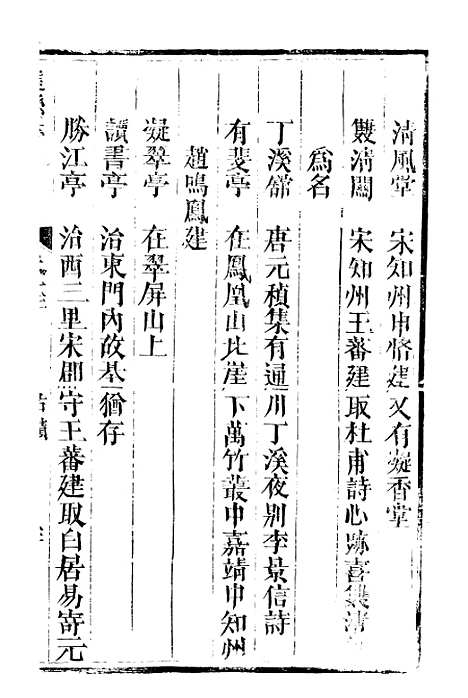 清風堂　宋知州申幋建又有凝香堂
雙清閣　宋知州王蕃建取杜甫詩心跡喜雙清
爲名
丁溪舘　唐元稹集有通川丁溪夜別李景信詩
有斐亭　在鳳凰山北崖下萬竹叢中嘉靖中知州
趙鳴鳳建
凝翠亭　在翠屏山上
讀書亭　治東門內故基猶存
勝江亭　治西二里宋郡守王蕃建取白居易寄元
古蹟